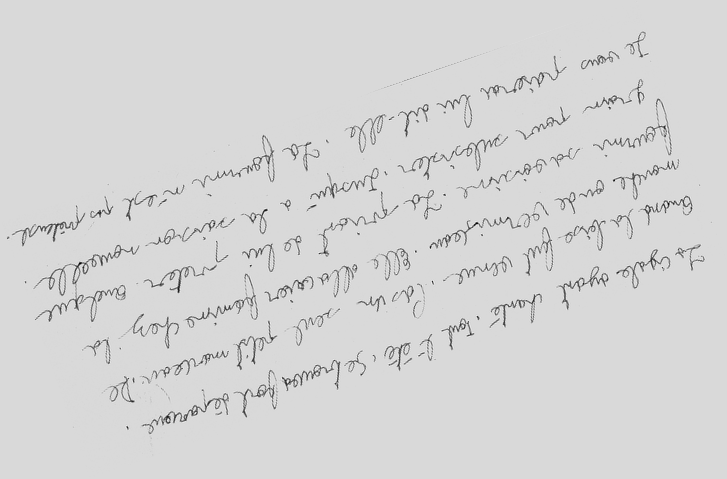 La cigale ayant chanté. Tout l'été, Se trouva fort dépourvue.
Quand la bise fut venue. Pas un seul petit morceau. De
mouche ou de vermisseau. Elle alla crier famine chez la
fourmi sa voisine. La priant de lui prêter. Quelque
grain pour subsister. Jusqu'à la saison nouvelle.
Je vous paierai lui dit-elle. La fourmi n'est pas prêteuse.